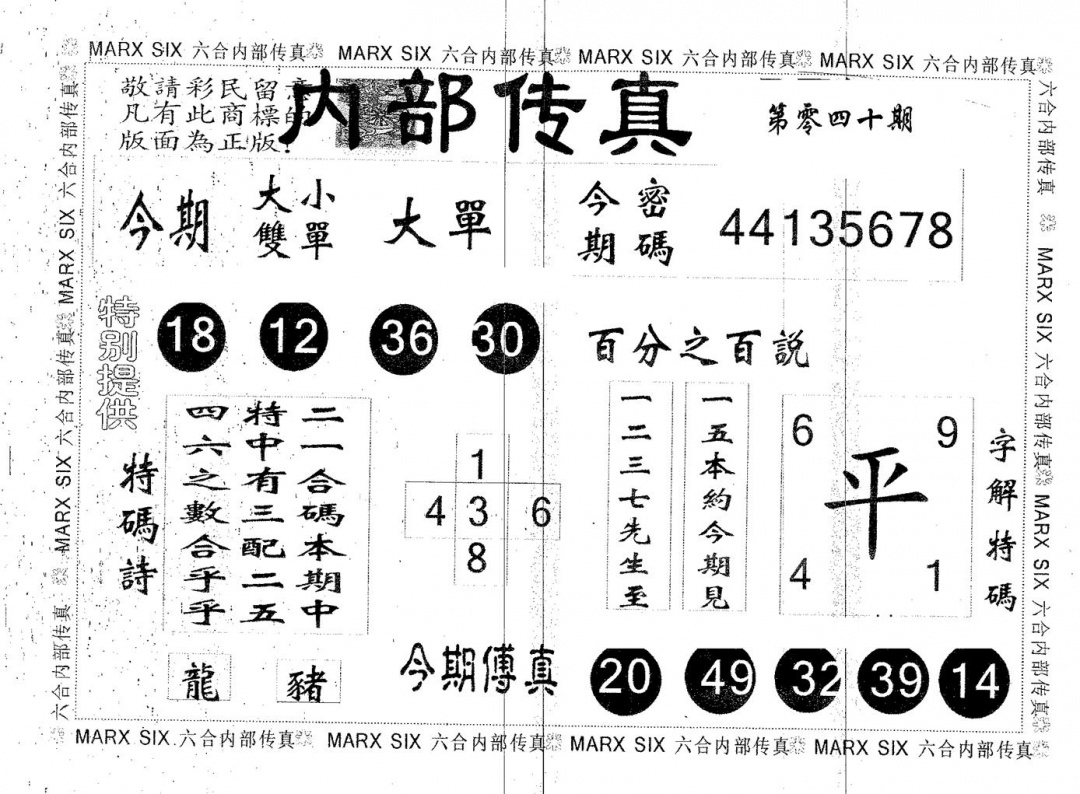 MARX SIX 六合内部传真 MARX SIX 六合内部传真 MARX SIX 六合内部传真 MARX SIX 六合内部传真
敬請彩民留意
凡有此商標的
版面為正版!
内部传真
第零四十期
今期
大小
雙單
大單
今密
期碼
44135678
特别提供
18 12 36 30
百分之百説
特碼詩
二一合碼本期中
特中有三配二五
四六之數合乎乎
1
4 3 6
8
一五本約今期見
一二三七先生至
6 9
平
4 1
字解特碼
龍 豬
今期傳真
20 49 32 39 14
MARX SIX 六合内部传真 MARX SIX 六合内部传真 MARX SIX 六合内部传真 MARX SIX 六合内部传真
六合内部传真 MARX SIX 六合内部传真 MARX SIX 六合内部传真 MARX SIX 六合内部传真
六合内部传真 MARX SIX 六合内部传真 MARX SIX 六合内部传真